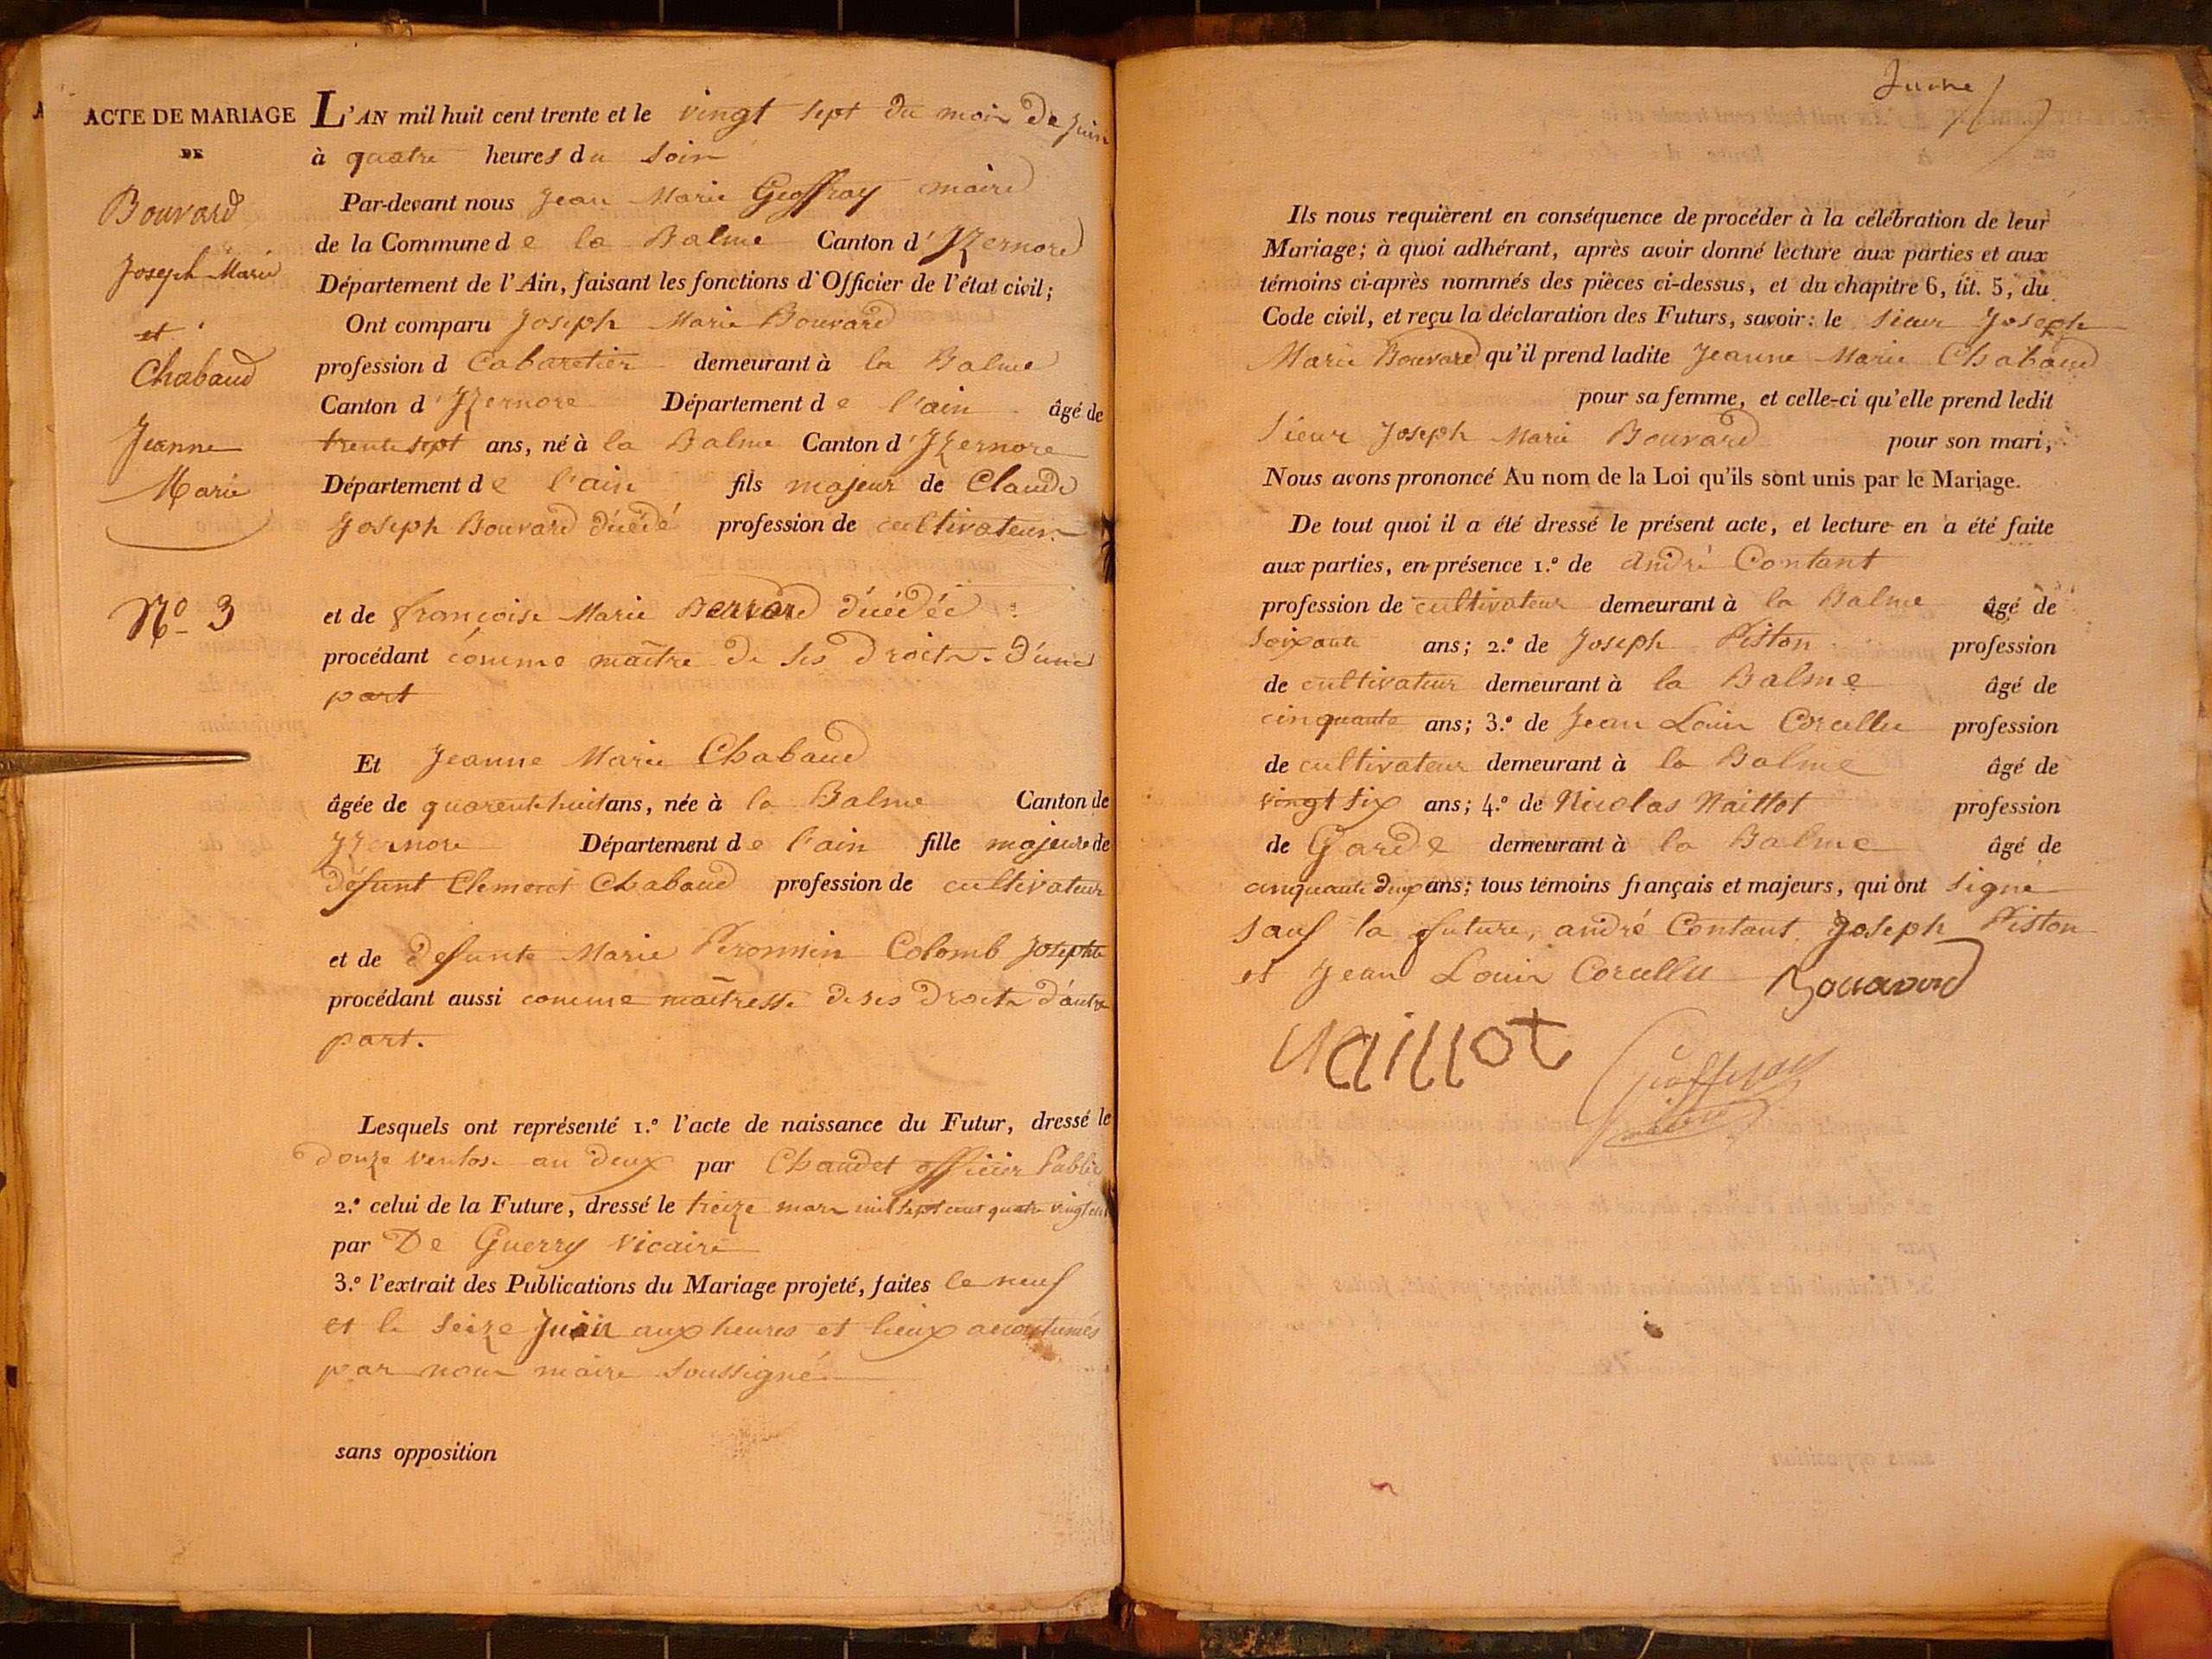 ACTE DE MARIAGE
DE
Bouvard
Joseph Marie
et
Chabaud
Jeanne
Marie
No 3
L'AN mil huit cent trente et le vingt sept du mois de juin
à quatre heures du soir
Par-devant nous Jean Marie Geoffray maire
de la Commune de la Balme Canton d'Izernore
Département de l'Ain, faisant les fonctions d'Officier de l'état civil;
Ont comparu Joseph Marie Bouvard
profession d Cabaretier demeurant à la Balme
Canton d'Izernore Département de l'ain âgé de
trente sept ans, né à la Balme Canton d'Izernore
Département de l'ain fils majeur de Claude
Joseph Bouvard décédé profession de cultivateur
et de françoise Marie décédée
procédant comme maître de ses droits d'une
part
Et Jeanne Marie Chabaud
âgée de quarente huit ans, née à la Balme Canton de
Izernore Département de l'ain fille majeure de
défunt Clement Chabaud profession de cultivateur
et de defunte Marie Colomb Josephte
procédant aussi comme maîtresse de ses droits d'autre
part.
Lesquels ont représenté 1.° l'acte de naissance du Futur, dressé le
douze ventose an deux par Chaudet officier Public
2.° celui de la Future, dressé le treize mars mil sept cent quatre vingt
par De Guerry vicaire
3.° l'extrait des Publications du Mariage projeté, faites le neuf
et le seize juin aux heures et lieux accoutumés
par nous maire soussigné
sans opposition
Ils nous requièrent en conséquence de procéder à la célébration de leur
Mariage; à quoi adhérant, après avoir donné lecture aux parties et aux
témoins ci-après nommés des pièces ci-dessus, et du chapitre 6, tit. 5, du
Code civil, et reçu la déclaration des Futurs, savoir: le sieur Joseph
Marie Bouvard qu'il prend ladite Jeanne Marie Chabaud
pour sa femme, et celle-ci qu'elle prend ledit
Sieur Joseph Marie Bouvard pour son mari,
Nous avons prononcé Au nom de la Loi qu'ils sont unis par le Mariage.
De tout quoi il a été dressé le présent acte, et lecture en a été faite
aux parties, en présence 1.° de andré Contant
profession de cultivateur demeurant à la Balme âgé de
soixante ans; 2.° de Joseph Piston profession
de cultivateur demeurant à la Balme âgé de
cinquante ans; 3.° de Jean Louis Corcellu profession
de cultivateur demeurant à la Balme âgé de
vingt six ans; 4.° de Nicolas Naillot profession
de Garde demeurant à la Balme âgé de
cinquante deux ans; tous témoins français et majeurs, qui ont signé
sauf la future, andré Contant, Joseph Piston
et Jean Louis Corcellu Bouvard
Naillot Geoffray
maire